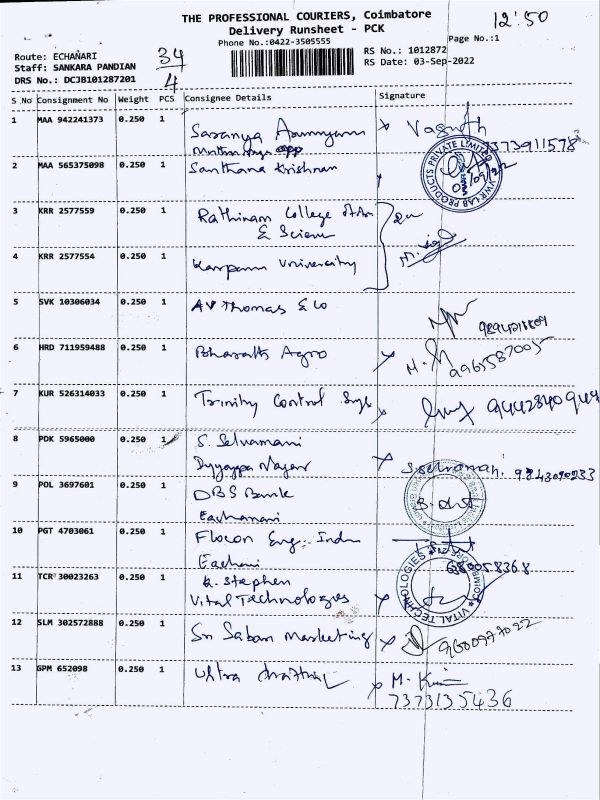 12'50
THE PROFESSIONAL COURIERS, Coimbatore
Delivery Runsheet - PCK
Phone No.:0422-3505555
Page No.:1
Route: ECHANARI
Staff: SANKARA PANDIAN
DRS No.: DCJB101287201
34
4
RS No.: 1012872
RS Date: 03-Sep-2022
S No Consignment No Weight PCS Consignee Details Signature
1 MAA 942241373 0.250 1 Saranya
2 MAA 565375098 0.250 1 Santhana Krishnan
VWR LAB PRODUCTS PRIVATE LIMITED
3 KRR 2577559 0.250 1 Rathinam College of
& Science
4 KRR 2577554 0.250 1 Karpam University
5 SVK 10306034 0.250 1 AV Thomas & Co
6 HRD 711959488 0.250 1 Bharath Agro
7 KUR 526314033 0.250 1 Trinity Control Sys
8 PDK 5965000 0.250 1 S. Selvamani
Nagar
S. Selvamani
9843090233
9 POL 3697601 0.250 1 DBS Bank
Eachanari
10 PGT 4703061 0.250 1 Flocon Eng. India
Eachani
11 TCR 30023263 0.250 1 K. Stephen
Vital Technologies
VITAL TECHNOLOGIES
12 SLM 302572888 0.250 1 Sri Sabari Marketing
9600977022
13 GPM 652098 0.250 1 Ultra
7373135436